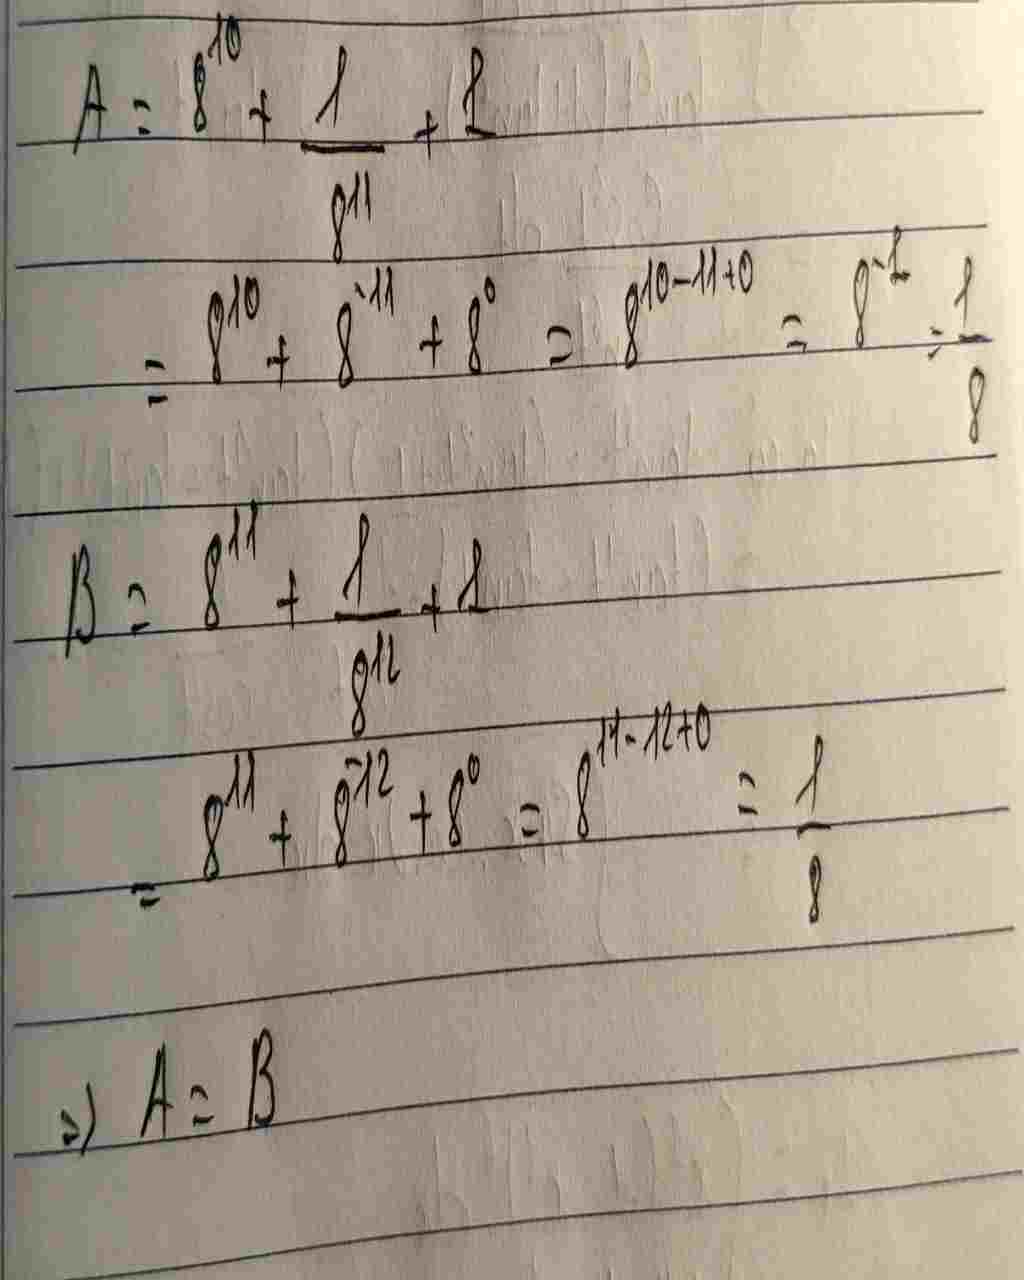 A = 8^10 + 1/8^11 + 1
= 8^10 + 8^-11 + 8^0 = 8^10-11+0 = 8^-1 = 1/8
B = 8^11 + 1/8^12 + 1
= 8^11 + 8^-12 + 8^0 = 8^11-12+0 = 1/8
=) A = B